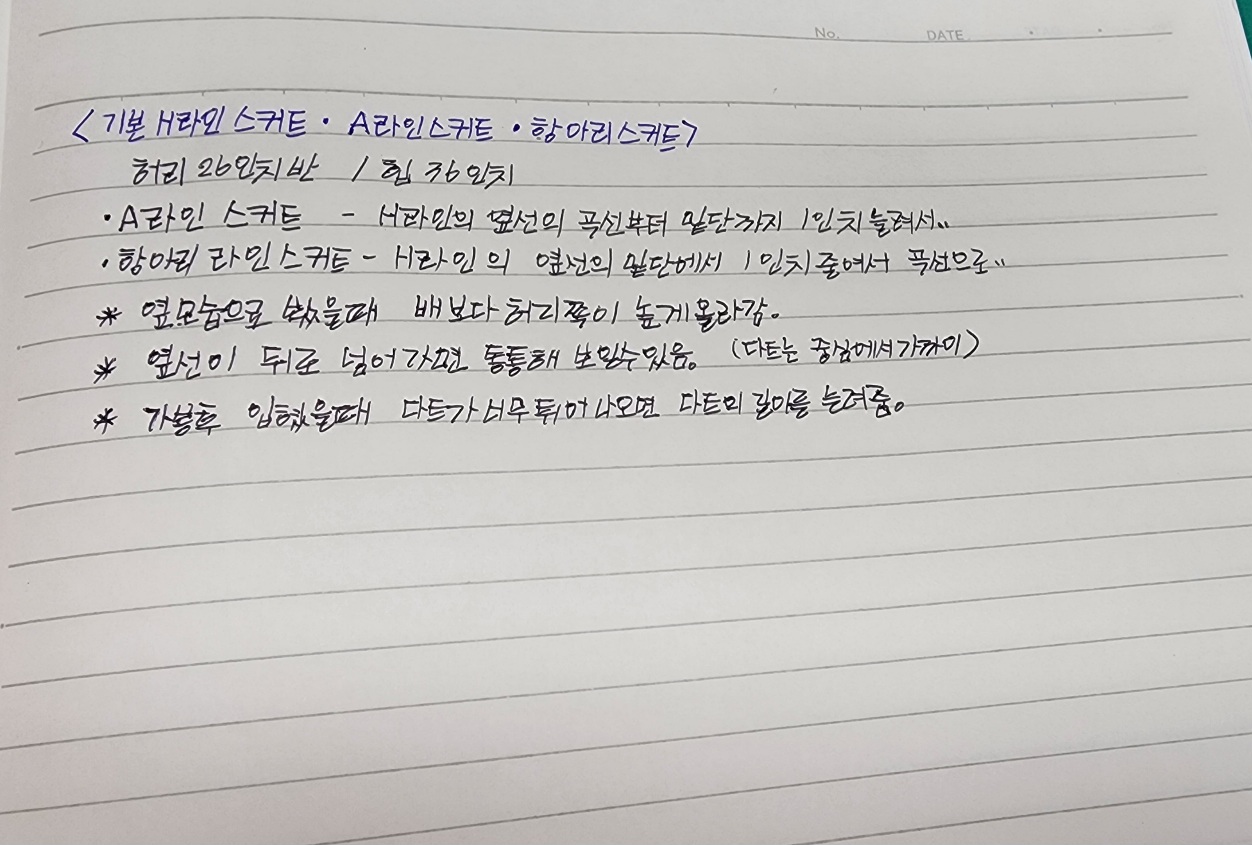 No. DATE
<기본 H라인 스커트 · A라인스커트 · 항아리스커트>
허리 26인치반 / 힙 36인치
· A라인 스커트 - H라인의 옆선의 곡선부터 밑단까지 1인치 늘려서..
· 항아리 라인스커트 - H라인의 옆선의 밑단에서 1인치 줄여서 곡선으로..
* 옆모습으로 봤을때 배보다 허리쪽이 높게올라감.
* 옆선이 뒤로 넘어가면 통통해 보일수있음. (다트는 중심에서가까이)
* 가봉후 입혔을때 다트가 너무 튀어나오면 다트의 길이를 늘려줌.